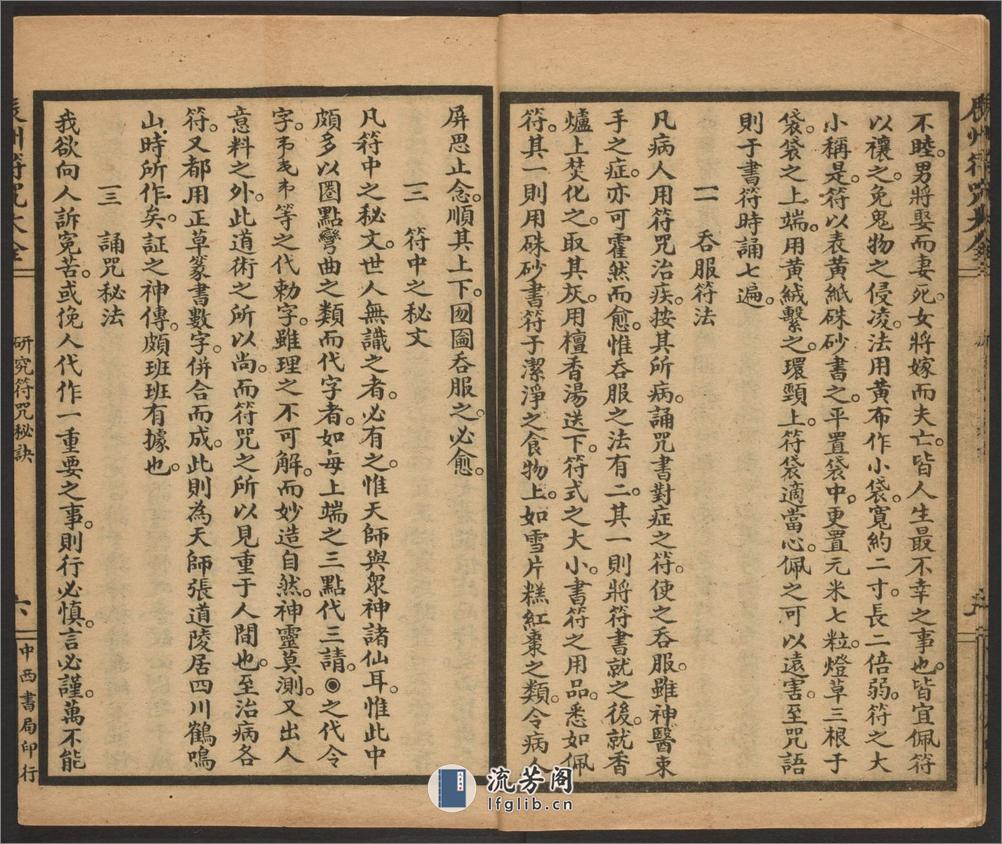 不睦。男將娶而妻死。女將嫁而夫亡。皆人生最不幸之事也。皆宜佩符
以禳之。免鬼物之侵凌。法用黃布作小袋。寬約二寸。長二倍弱。符之大
小稱是。符以表黃紙硃砂書之。平置袋中。更置元米七粒。燈草三根于
袋。袋之上端。用黃絨繫之。環頸上。符袋適當心。佩之可以遠害。至咒語
則于書符時誦七遍
二 吞服符法
凡病人用符咒治疾。按其所病。誦咒書對症之符。使之吞服。雖神醫束
手之症。亦可霍然而愈。惟吞服之法有二。其一則將符書就之後。就香
爐上焚化之。取其灰。用檀香湯送下。符式之大小。書符之用品。悉如佩
符。其一則用硃砂書符于潔淨之食物上。如雪片糕紅棗之類。令病人
屏思止念。順其上下囫圇吞服之。必愈。
三 符中之秘文
凡符中之秘文。世人無識之者。必有之。惟天師與眾神諸仙耳。惟此中
頗多以圈點彎曲之類而代字者。如每上端之三點代三請。◉之代令
字。等之代勅字。雖理之不可解。而妙造自然。神靈莫測。又出人
意料之外。此道術之所以尚。而符咒之所以見重于人間也。至治病各
符。又都用正草篆書數字。併合而成。此則為天師張道陵居四川鶴鳴
山時所作矣。証之神傳。頗班班有據也。
三 誦咒秘法
我欲向人訴冤苦。或俛人代作一重要之事。則行必慎。言必謹。萬不能
辰州符咒大全
研究符咒秘訣
六
中西書局印行
流芳阁
lfglib.cn